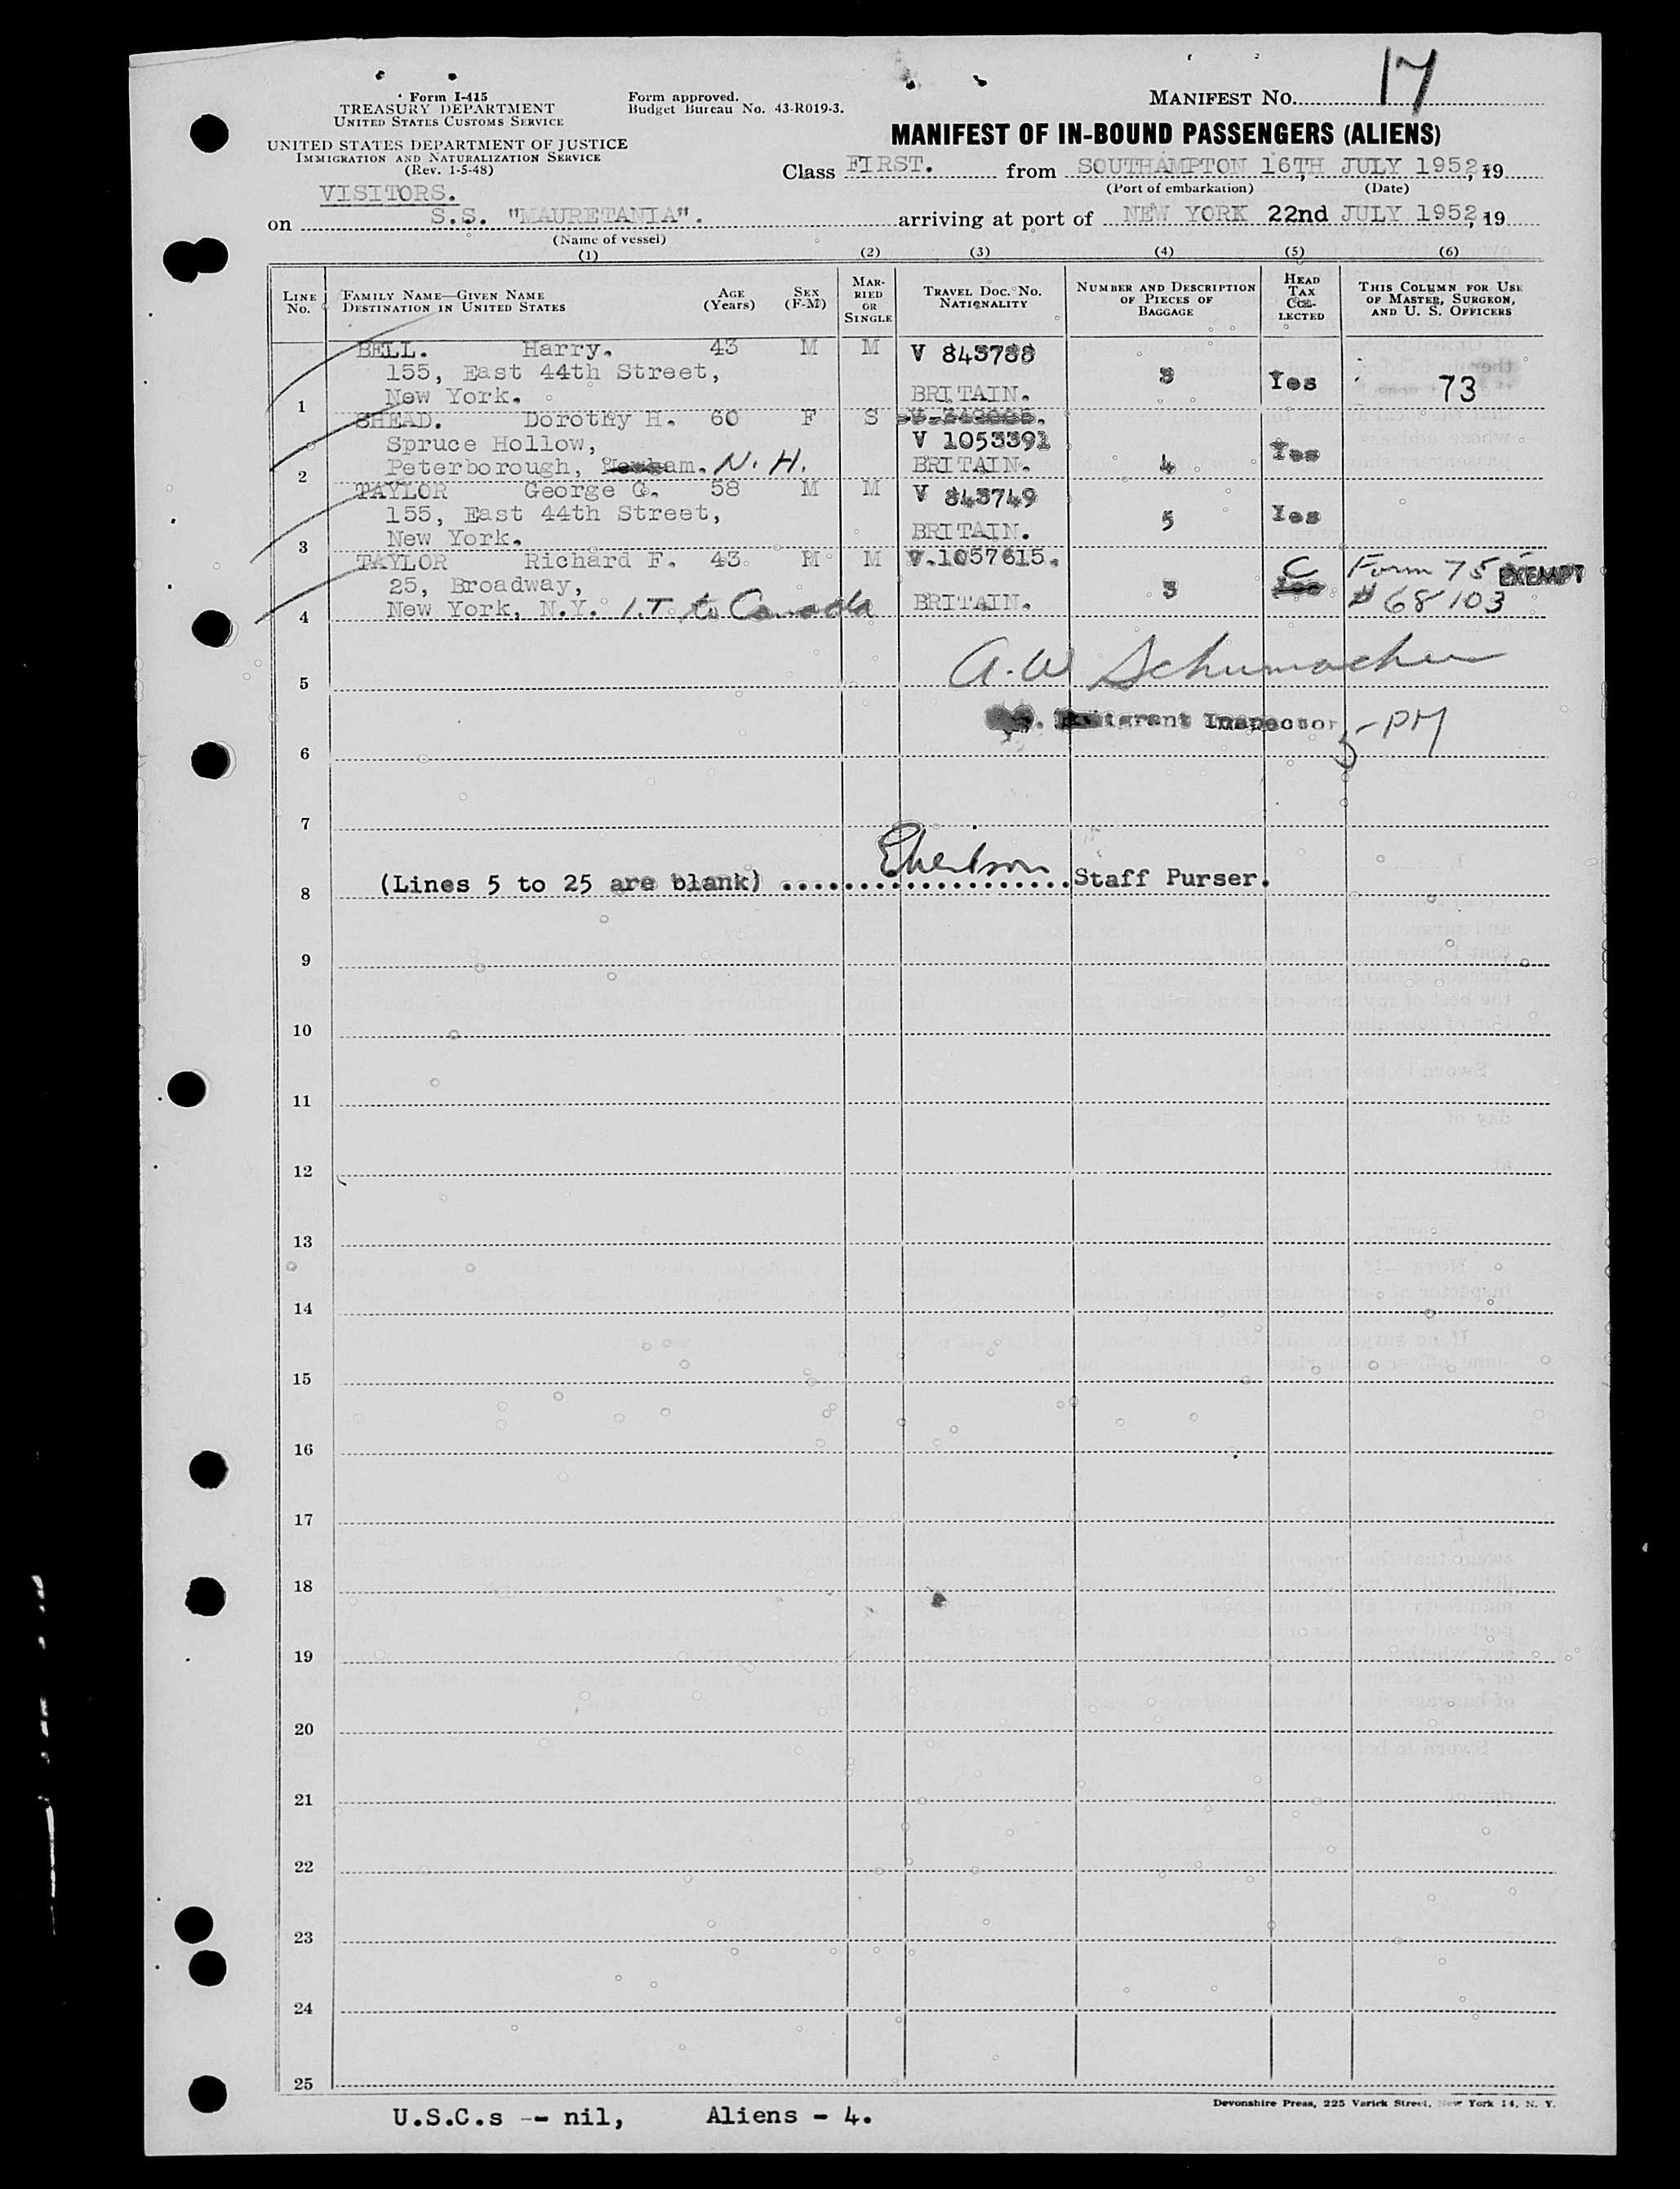 Form I-415
TREASURY DEPARTMENT
UNITED STATES CUSTOMS SERVICE
UNITED STATES DEPARTMENT OF JUSTICE
IMMIGRATION AND NATURALIZATION SERVICE
(Rev. 1-5-48)
Form approved.
Budget Bureau No. 43-R019-3.
MANIFEST NO. 17
MANIFEST OF IN-BOUND PASSENGERS (ALIENS)
Class FIRST. from SOUTHAMPTON 16TH JULY 1952, 19
(Port of embarkation) (Date)
VISITORS.
on S.S. "MAURETANIA". arriving at port of NEW YORK 22nd JULY 1952, 19
(Name of vessel)
(1) (2) (3) (4) (5) (6)
LINE No. FAMILY NAME—GIVEN NAME DESTINATION IN UNITED STATES AGE (Years) SEX (F-M) MARRIED OR SINGLE TRAVEL DOC. NO. NATIONALITY NUMBER AND DESCRIPTION OF PIECES OF BAGGAGE HEAD TAX COLLECTED THIS COLUMN FOR USE OF MASTER, SURGEON, AND U. S. OFFICERS
BELL. Harry. 43 M M V 843788
155, East 44th Street, 3 Yes 73
1 New York. BRITAIN.
SHEAD. Dorothy H. 60 F S
Spruce Hollow, V 1053391
2 Peterborough, N. H. BRITAIN. 4 Yes
TAYLOR George G. 58 M M V 843749
155, East 44th Street, 5 Yes
3 New York. BRITAIN.
TAYLOR Richard F. 43. M M V.1057615. C Form 75 EXEMPT
25, Broadway, 3 Yes # 68103
4 New York, N.Y. I.T. to Canada BRITAIN.
A. W Schumacher
5
Immigrant Inspector
6
7
(Lines 5 to 25 are blank) Staff Purser.
8
9
10
11
12
13
14
15
16
17
18
19
20
21
22
23
24
25
U.S.C.s -- nil, Aliens - 4.
Devonshire Press, 225 Varick Street, New York 14, N. Y.